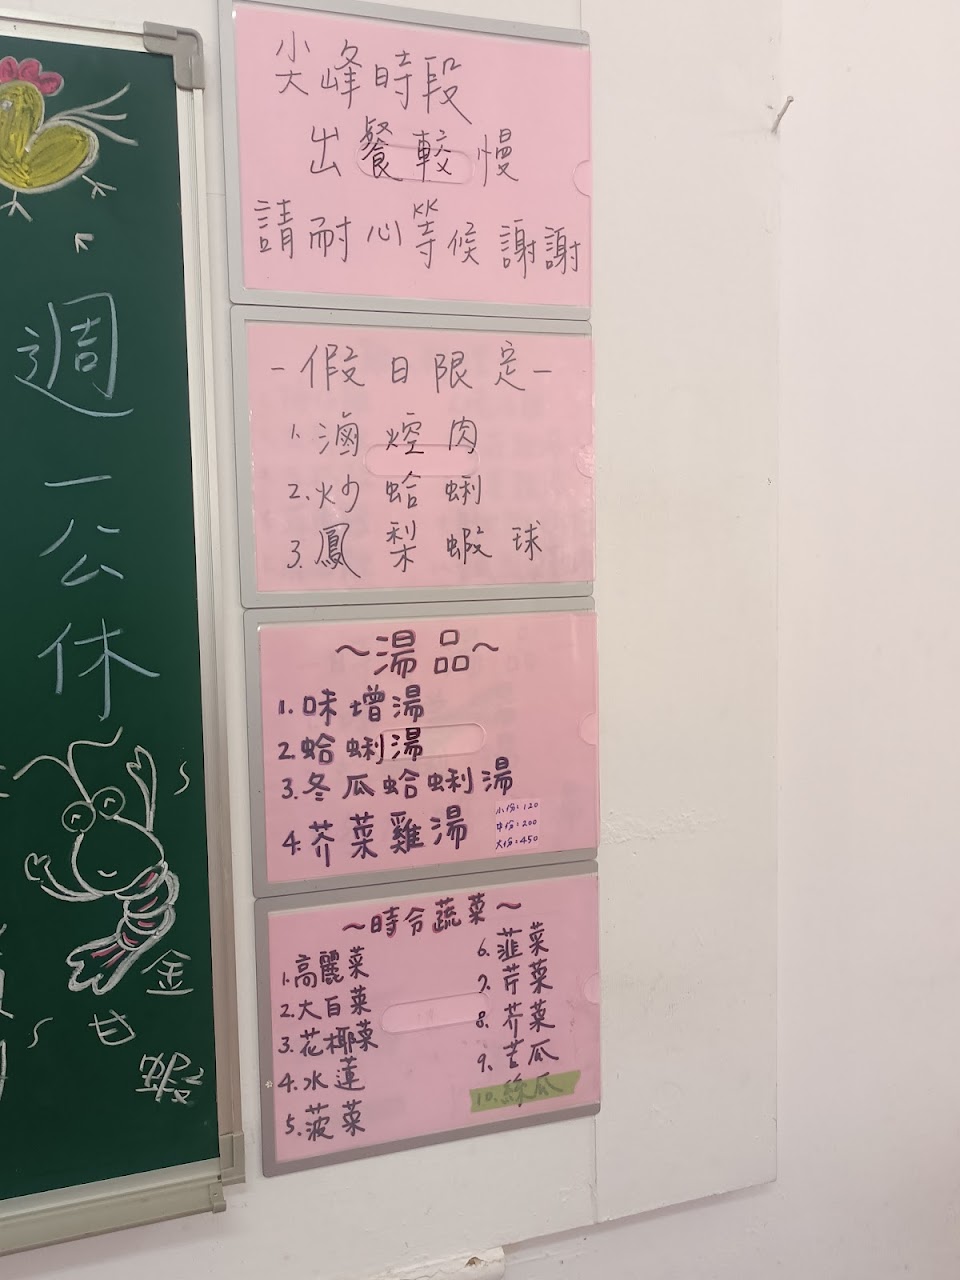 週
一
公
休
金
甘
蝦
尖峰時段
出餐較慢
請耐心等候 謝謝
-假日限定-
1.滷焢肉
2.炒蛤蜊
3.鳳梨蝦球
~湯品~
1.味增湯
2.蛤蜊湯
3.冬瓜蛤蜊湯
4.芥菜雞湯
小份:120
中份:200
大份:450
~時令蔬菜~
1.高麗菜
2.大白菜
3.花椰菜
4.水蓮
5.菠菜
6.韮菜
7.芹菜
8.芥菜
9.苦瓜
10.絲瓜